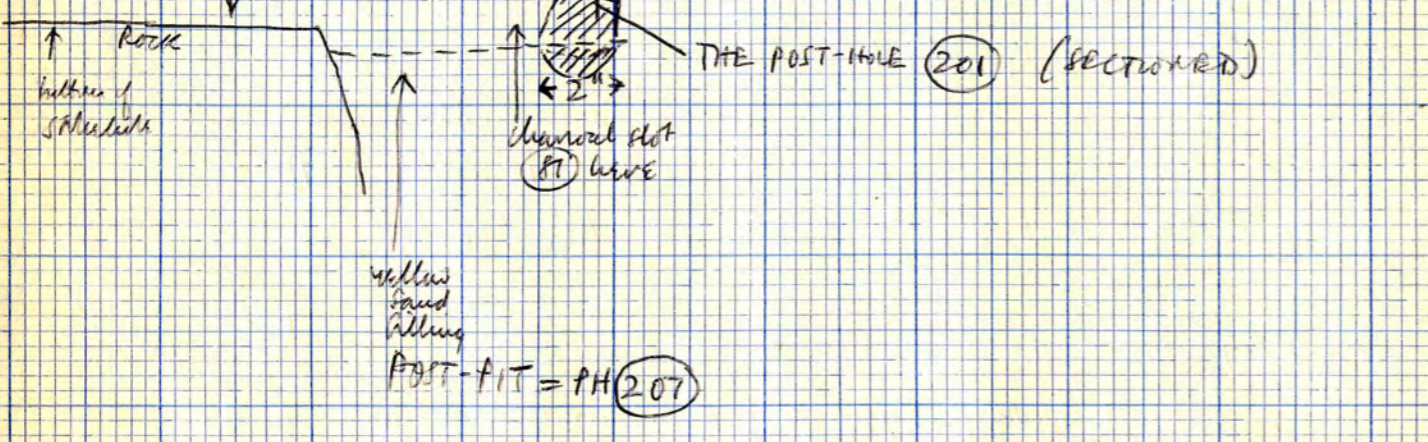 ROCK
bottom of
THE POST-HOLE 201 (SECTIONED)
2"
charcoal slot
87 here
yellow
sand
filling
POST-PIT = PH 207